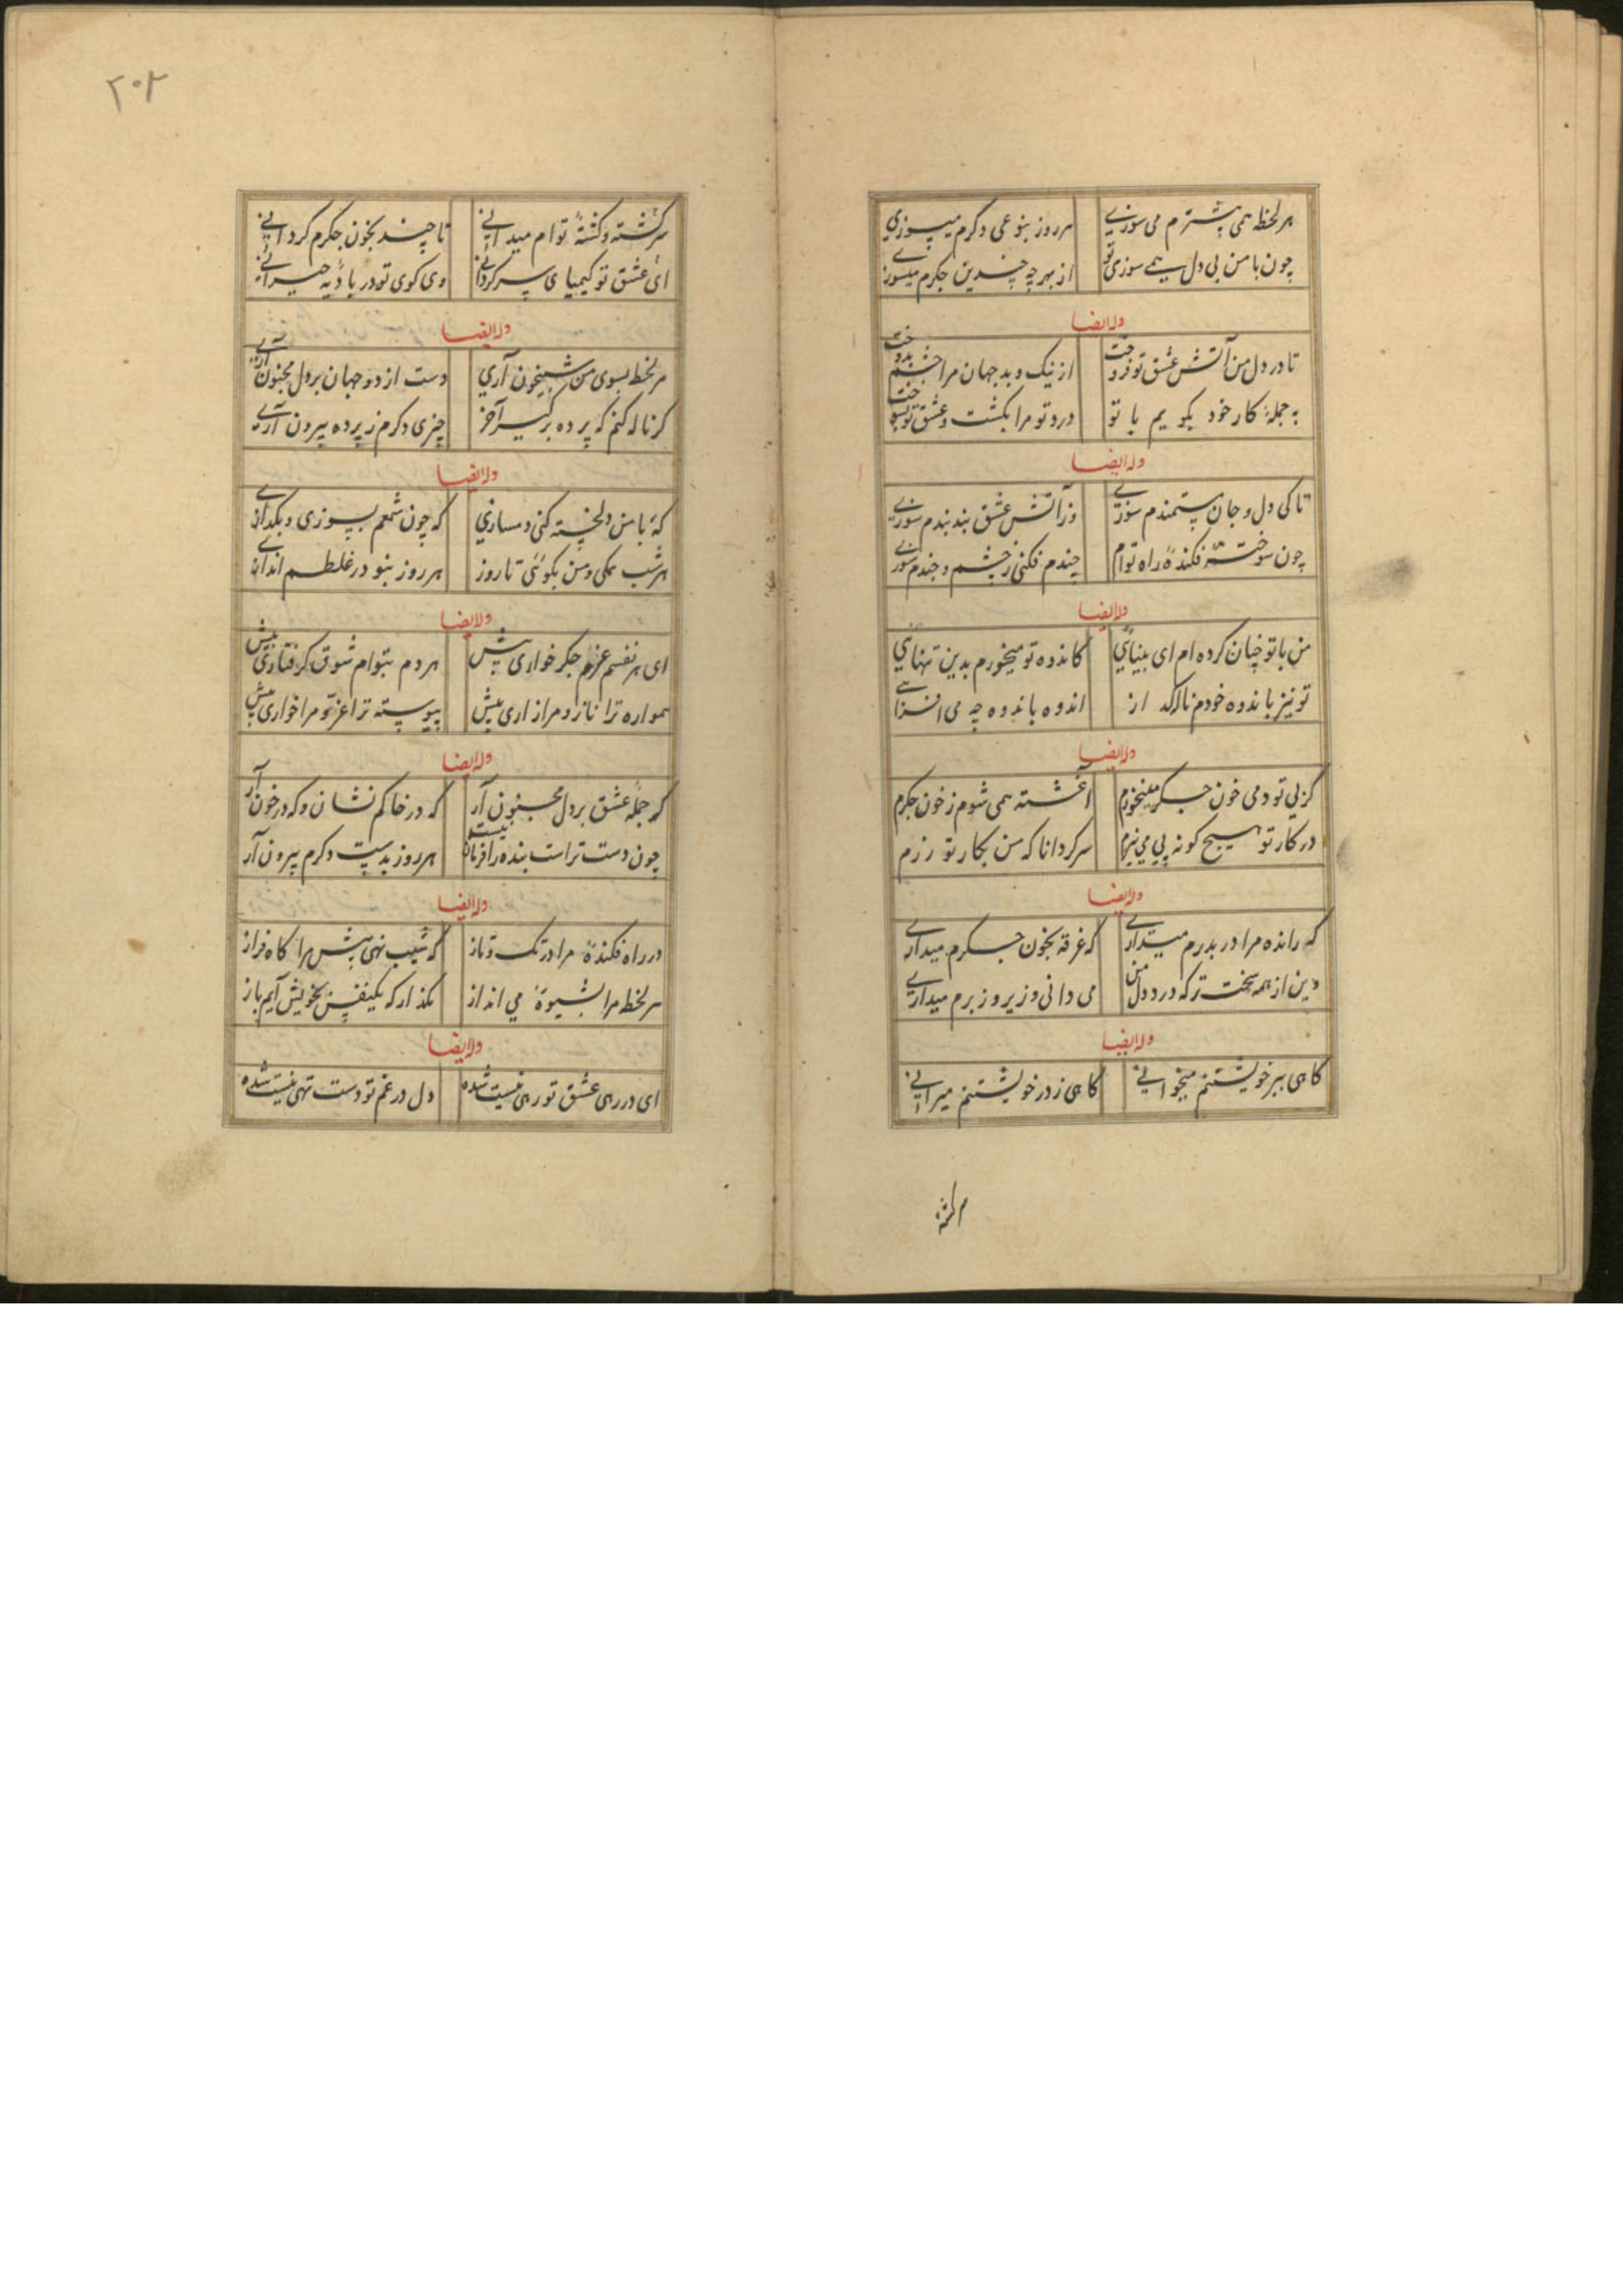 هر لحظه همی پشترم می سوزی
هر روز بنوعی دگرم میسوزی
چون با من بی دل همی سوزی تو
از بهر چه چندین جگرم میسوزی
وله ایضا
تا در دل من آتش عشق تو فروخت
از نیک و بد جهان مرا چشم بدوخت
به جمله کار خود بگویم با تو
درد تو مرا بکشت و عشق تو بسوخت
وله ایضا
تا کی دل و جان مستمندم سوزی
وز آتش عشق بند بندم سوزی
چون سوخته فکندهٔ راه توام
چندم فکنی ز چشم و چندم سوزی
وله ایضا
من با تو چنان کرده ام ای بینایی
کاندوه تو میخورم بدین تنهایی
تو نیز باندوه خودم
اندوه باندوه چه می افزایی
وله ایضا
گر بی تو دمی خون جگر میخورم
آغشته همی شوم ز خون جگرم
در کار تو هیچ گونه پی می نبرم
سرگردانا که من بکار تو درم
وله ایضا
که رانده مرا در بدرم میداری
که غرقه بخون جگرم میداری
وین از همه سخت تر که درد دل من
می دانی و زیر و زبرم میداری
وله ایضا
گاهی ببر خویشتنم میخوانی
گاهی ز در خویشتنم میرانی
سرگشته
۲۰۲
سرگشته و کشتهٔ توام میدانی
تا چند بخون جگرم گردانی
ای عشق تو کیمیای سرگردانی
وی کوی تو در بادیه حیرانی
وله ایضا
هر لحظ بسوی من شبیخون آری
دست از دو جهان بر دل مجنون آری
گر ناله کنم که پرده برگیر آخر
چیزی دگرم ز پرده بیرون آری
وله ایضا
گه با من دلخسته کنی دمسازی
که چون شمعم بسوزی و بگدازی
هر شب و من بگوئی تا روز
هر روز بنو در غلطم اندازی
وله ایضا
ای هر نفسم عزم جگر خواری پیش
هر دم بتوام شوق گرفتاری بیش
همواره ترا ناز و مرا زاری بیش
پیوسته ترا عز و مرا خواری بیش
وله ایضا
گر جمله عشق بر دل مجنون آر
که در خاکم نشان و که در خون آر
چون دست تراست بنده را فرمان نیست
هر روز بدست دگرم بیرون آر
وله ایضا
در راه فکندهٔ مرا در تک و تاز
که شیب نهی پیش مرا گاه فراز
هر لحظ مرا بشیوهٔ می انداز
بگذار که یکنفس بخویش آیم باز
وله ایضا
ای در رهی عشق تو رهی نیست شده
دل در غم تو دست تهی نیست شده